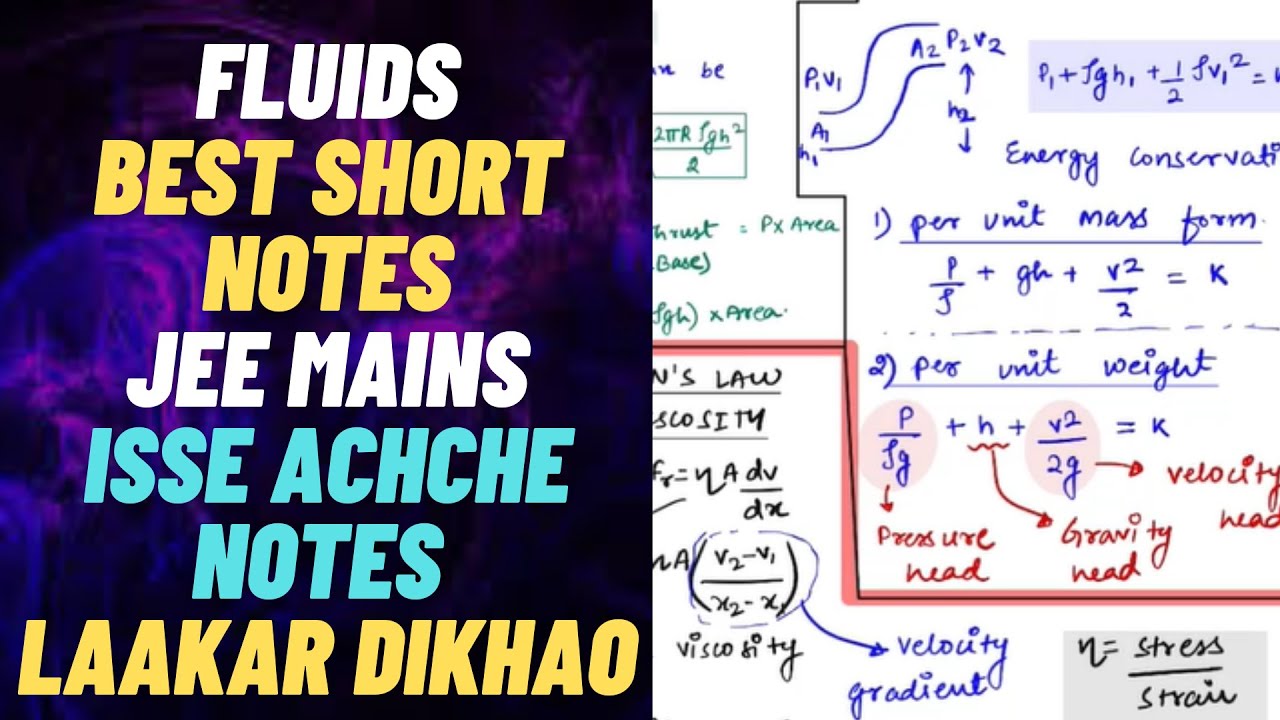 FLUIDS
BEST SHORT
NOTES
JEE MAINS
ISSE ACHCHE
NOTES
LAAKAR DIKHAO
be
2πR ρgh²
2
thrust = P x Area
Base)
ρgh) x Area.
N'S LAW
SCOSITY
Fr = ηA dv
dx
A (v2 - v1
x2 - x1)
viscosity
velocity
gradient
A2 P2 V2
P1 V1
A1
h1
h2
P1 + ρgh1 + 1/2 ρv1² =
Energy conservati
1) per unit mass form.
P/ρ + gh + v²/2 = K
2) per unit weight
P/ρg + h + v²/2g = K
velocity
head
Pressure
head
Gravity
head
η = stress
strain